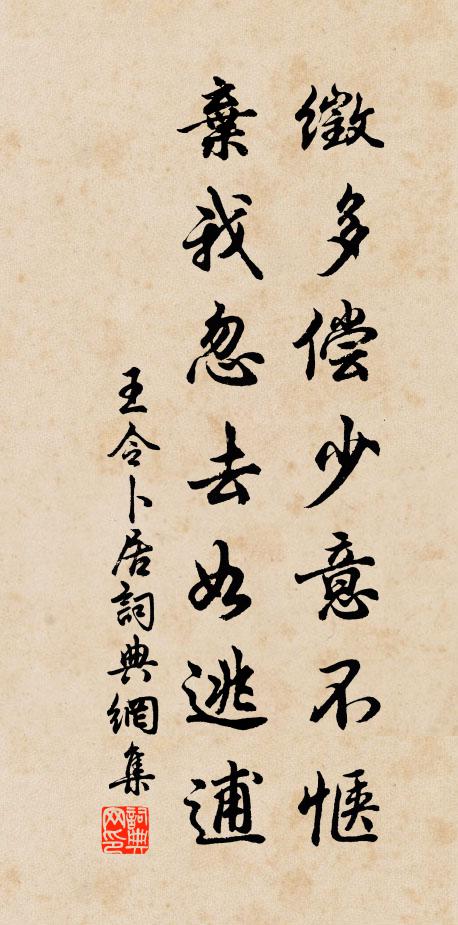 徵多偿少意不惬
棄我忽去如逃逋
王令卜居詞典網集
詞典
网印